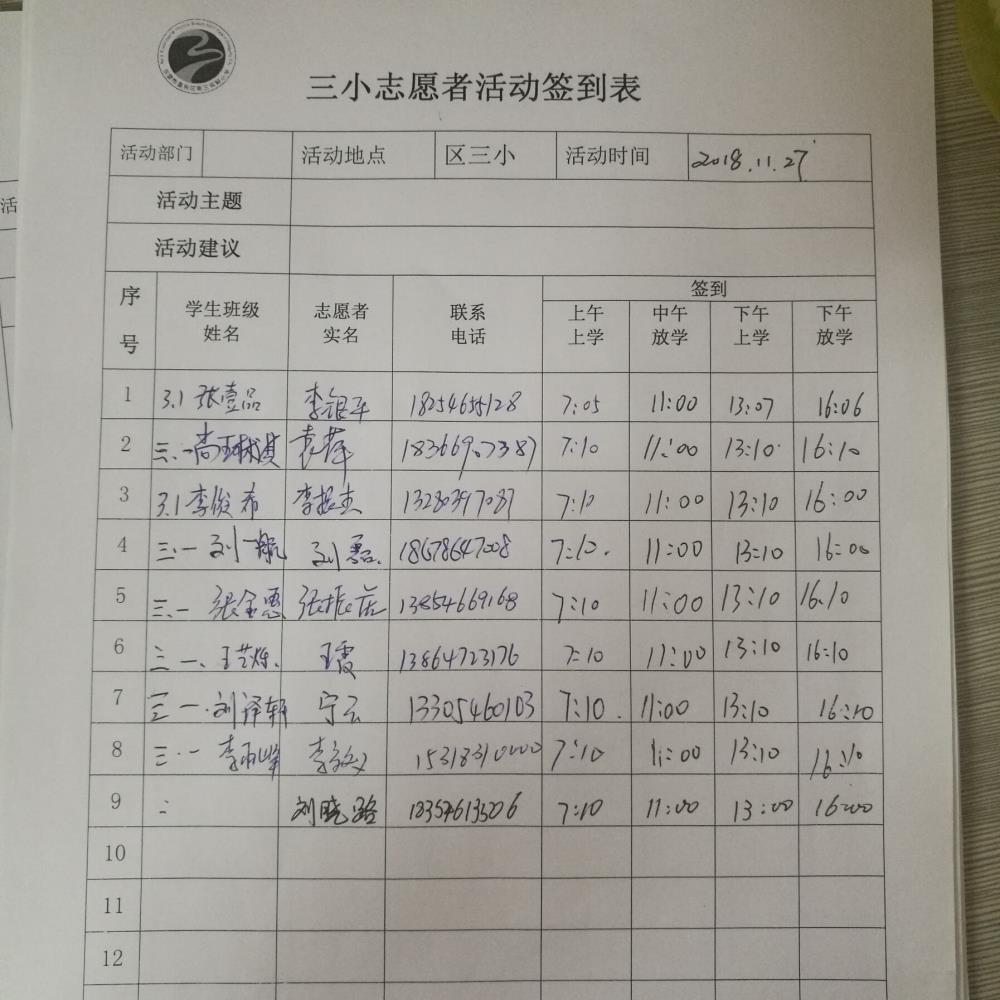 三小志愿者活动签到表
活动部门 活动地点 区三小 活动时间 2018.11.27
活动主题
活动建议
序号 学生班级姓名 志愿者实名 联系电话 签到
上午上学 中午放学 下午上学 下午放学
1 3.1 张壹品 李银平 18254655128 7:05 11:00 13:07 16:06
2 三.一 尚 袁萍 7:10 11:00 13:10 16:10
3 3.1 李俊希 李振杰 13280397087 7:10 11:00 13:10 16:00
4 三.一 刘一航 刘磊. 18678647008 7:10. 11:00 13:10 16:00
5 三.一 张金惠 张振 13854669168 7:10 11:00 13:10 16.10
6 三一、王艺烁. 王霞 13864723176 7:10 11:00 13:10 16:10
7 三一.刘译轩 宁云 13305460103 7:10. 11:00 13:10 16:10
8 三.一 李 李 15318310000 7:10 11:00 13:10 16:10
9 刘晓路 18354613506 7:10 11:00 13:00 16:00
10
11
12